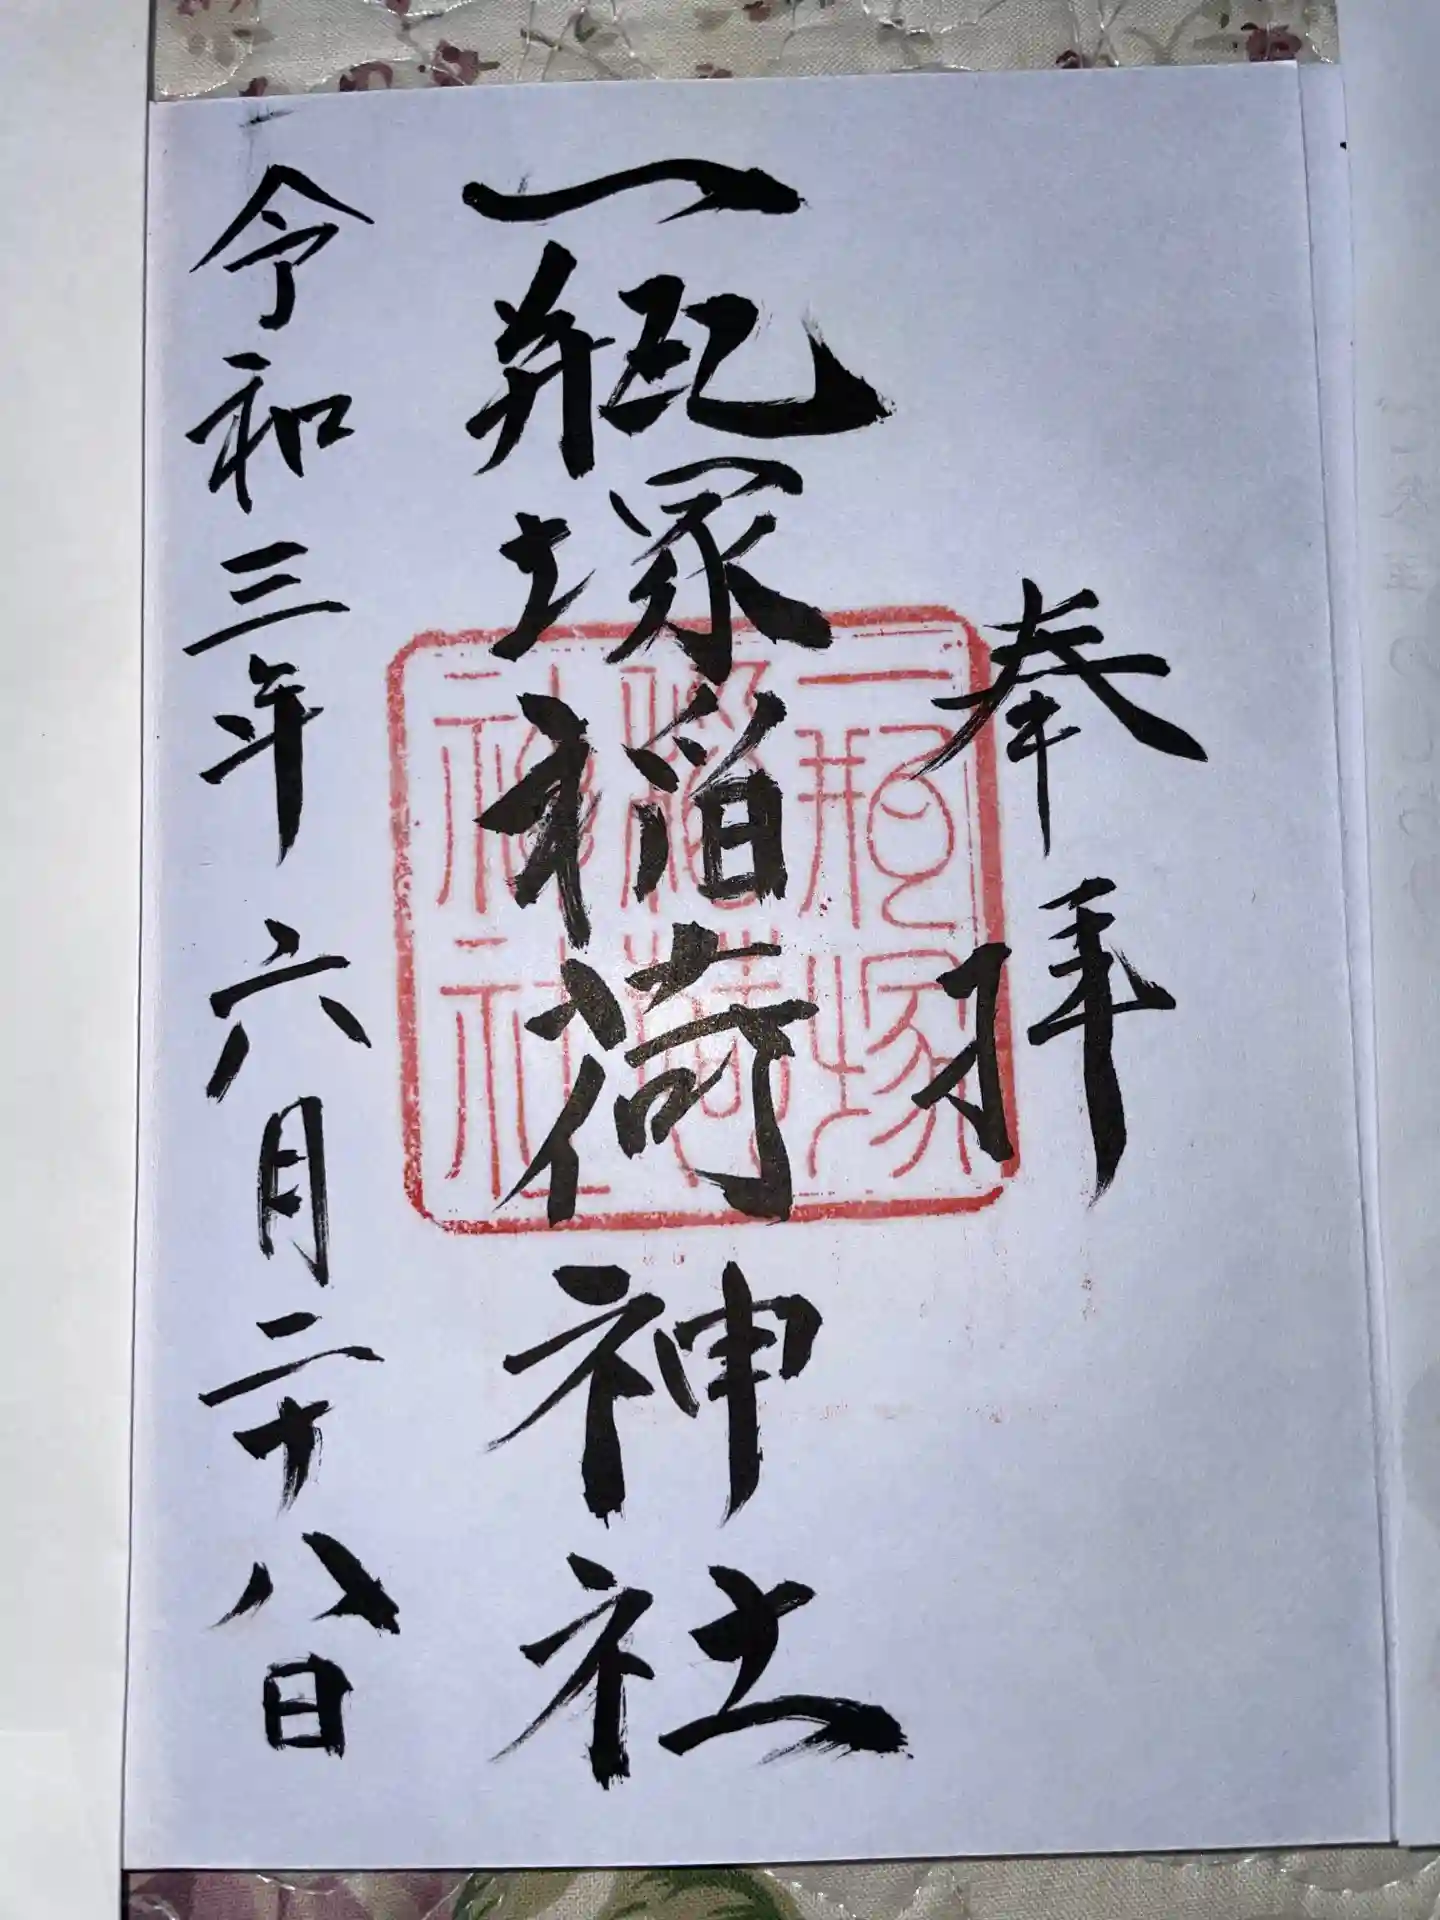 奉拝
一瓶塚稲荷神社
令和三年六月二十八日
一瓶塚
稲荷
神社